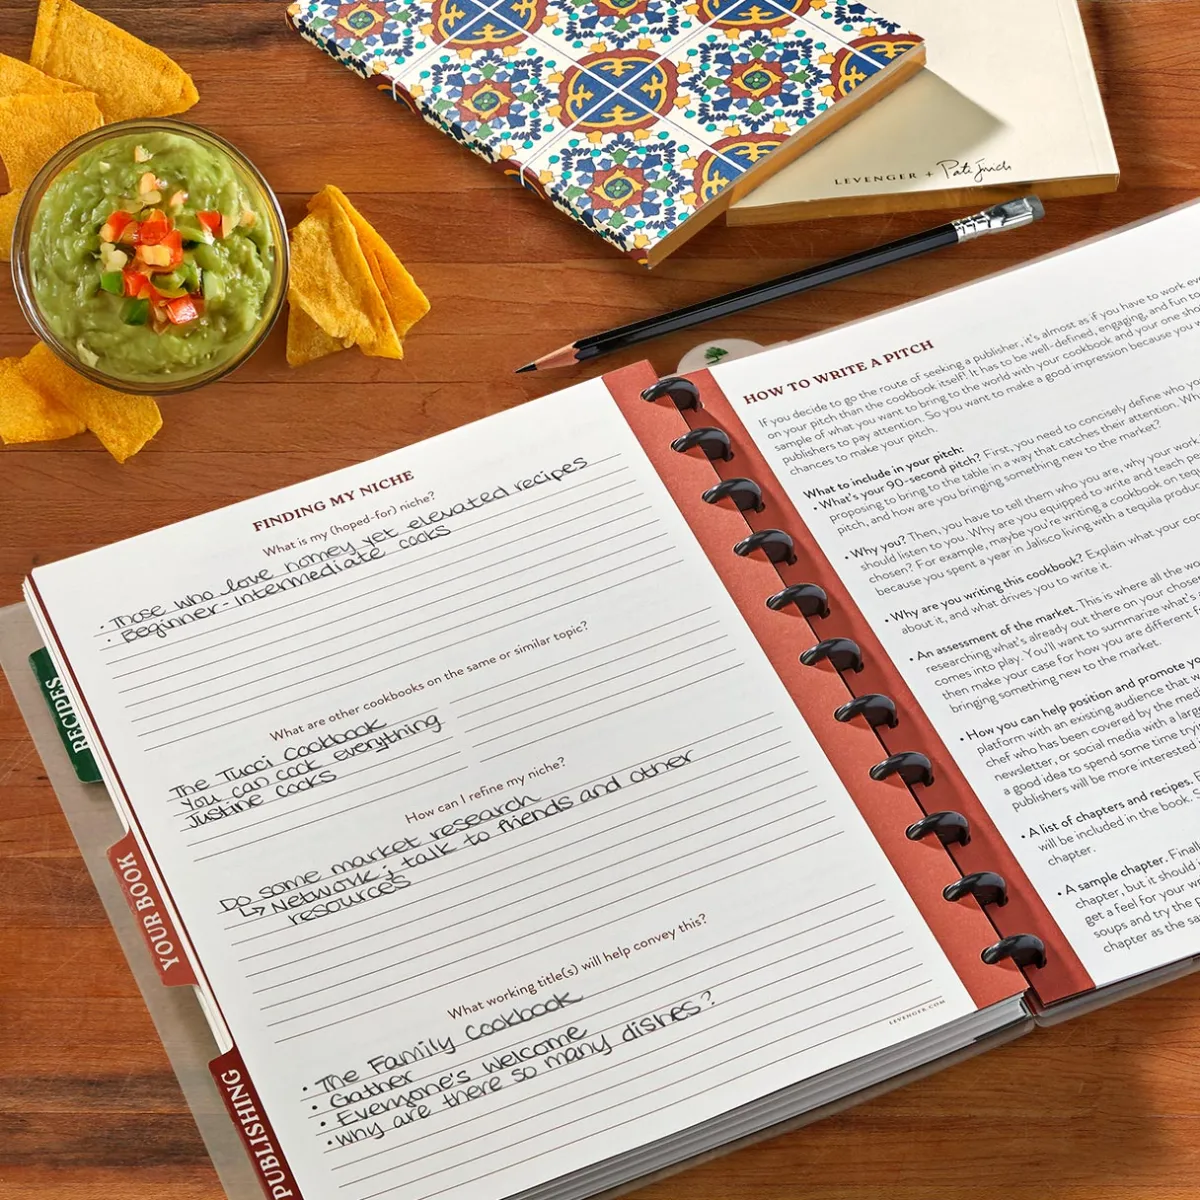 LEVENGER + Pati Jinich
FINDING MY NICHE
What is my (hoped-for) niche?
· Those who love homey yet elevated recipes
· Beginner-Intermediate cooks
What are other cookbooks on the same or similar topic?
The Tucci Cookbook
You can cook everything
Justine Cooks
How can I refine my niche?
Do some market research
↳ Network; talk to friends and other
resources
What working title(s) will help convey this?
· The Family Cookbook
· Gather
· Everyone's welcome
· Why are there so many dishes?
LEVENGER.COM
RECIPES
YOUR BOOK
PUBLISHING
HOW TO WRITE A PITCH
If you decide to go the route of seeking a publisher, it's almost as if you have to work
on your pitch than the cookbook itself! It has to be well-defined, engaging, and fun to
sample of what you want to bring to the world with your cookbook and your one
publishers to pay attention. So you want to make a good impression because you
chances to make your pitch.
What to include in your pitch:
• What's your 90-second pitch? First, you need to concisely define who you
proposing to bring to the table in a way that catches their attention.
pitch, and how are you bringing something new to the market?
• Why you? Then, you have to tell them who you are, why your work
should listen to you. Why are you equipped to write and teach
chosen? For example, maybe you're writing a cookbook on
because you spent a year in Jalisco living with a tequila
• Why are you writing this cookbook? Explain what your
about it, and what drives you to write it.
• An assessment of the market. This is where all the
researching what's already out there on your
comes into play. You'll want to summarize what's
then make your case for how you are different
bringing something new to the market.
• How you can help position and promote
platform with an existing audience that
chef who has been covered by the
newsletter, or social media with a
a good idea to spend some time
publishers will be more interested
• A list of chapters and recipes.
will be included in the book.
chapter.
• A sample chapter.
chapter, but it should
get a feel for your
soups and try the
chapter as the